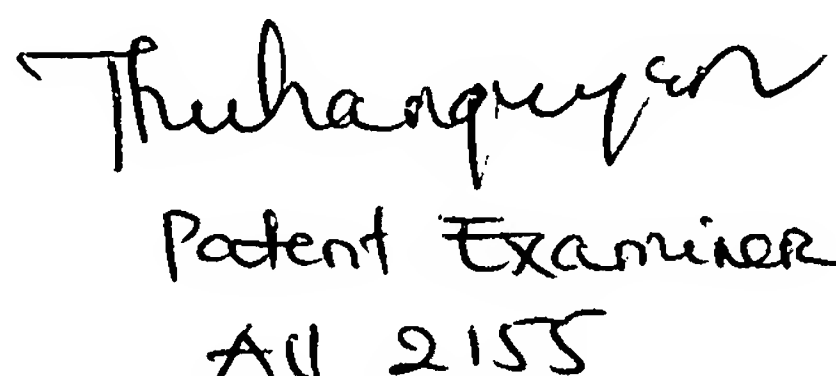 Thuhanguyen
Patent Examiner
AU 2155